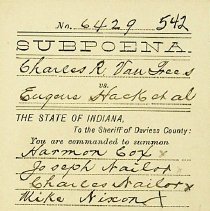 No. 6429 542
SUBPOENA.
Charles R. Van Trees
vs.
Eugene Hack et al
THE STATE OF INDIANA,
To the Sheriff of Daviess County:
You are commanded to summon
Harmon Cox x
Joseph Nailor
Charles Nailor x
Mike Nixon x